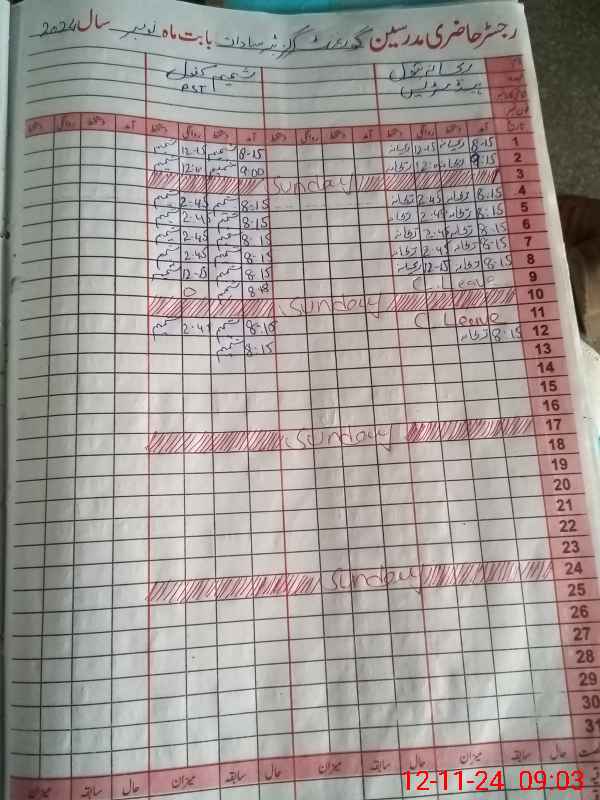 رجسٹر حاضری مدرسین گورنمنٹ گرلز بابت ماہ نومبر سال 2024
ریحانہ بتول شمیم کنول
ہیڈ مسٹریس PST
تاریخ آمد دستخط روانگی دستخط آمد دستخط روانگی دستخط آمد دستخط روانگی دستخط
1 8-15 ریحانہ 12-15 ریحانہ 8-15 شمیم 12-15 شمیم
2 8:15 ریحانہ ریحانہ 9:00 شمیم شمیم
3 Sunday
4 8:15 ریحانہ 2-45 ریحانہ 8:15 شمیم 2-45 شمیم
5 8:15 ریحانہ 2-45 ریحانہ 8:15 شمیم 2-45 شمیم
6 8:15 ریحانہ 2-45 ریحانہ 8:15 شمیم 2-45 شمیم
7 8:15 ریحانہ 2-45 ریحانہ 8:15 شمیم 2-45 شمیم
8 8:15 ریحانہ 12-15 ریحانہ 8:15 شمیم 12-15 شمیم
9 C. Leave شمیم
10 Sunday
11 C. Leave 8-15 شمیم 2-45 شمیم
12 8:15 ریحانہ 8:15 شمیم
13
14
15
16
17 Sunday
18
19
20
21
22
23
24 Sunday
25
26
27
28
29
30
31
حال سابقہ میزان حال سابقہ میزان حال سابقہ میزان
12-11-24 09:03